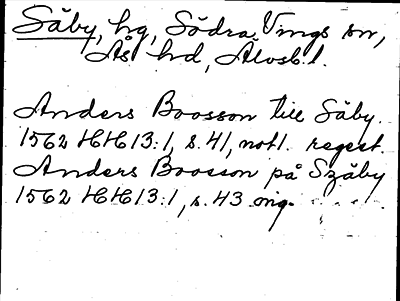 Säby, hg, Södra Vings sn,
Ås hd, Älvsb.l.
Anders Boosson till Säby.
1562 HH13:1, s. 41, not1. regest.
Anders Boosson på Szäby
1562 HH13:1, s. 43 orig.